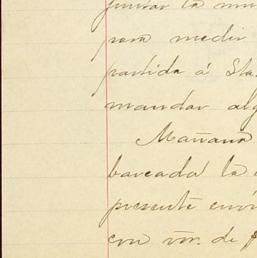 juntar la
para medir
partida á Sta.
mandar alg
Mañana
barcada la
presente envi
con vm. de